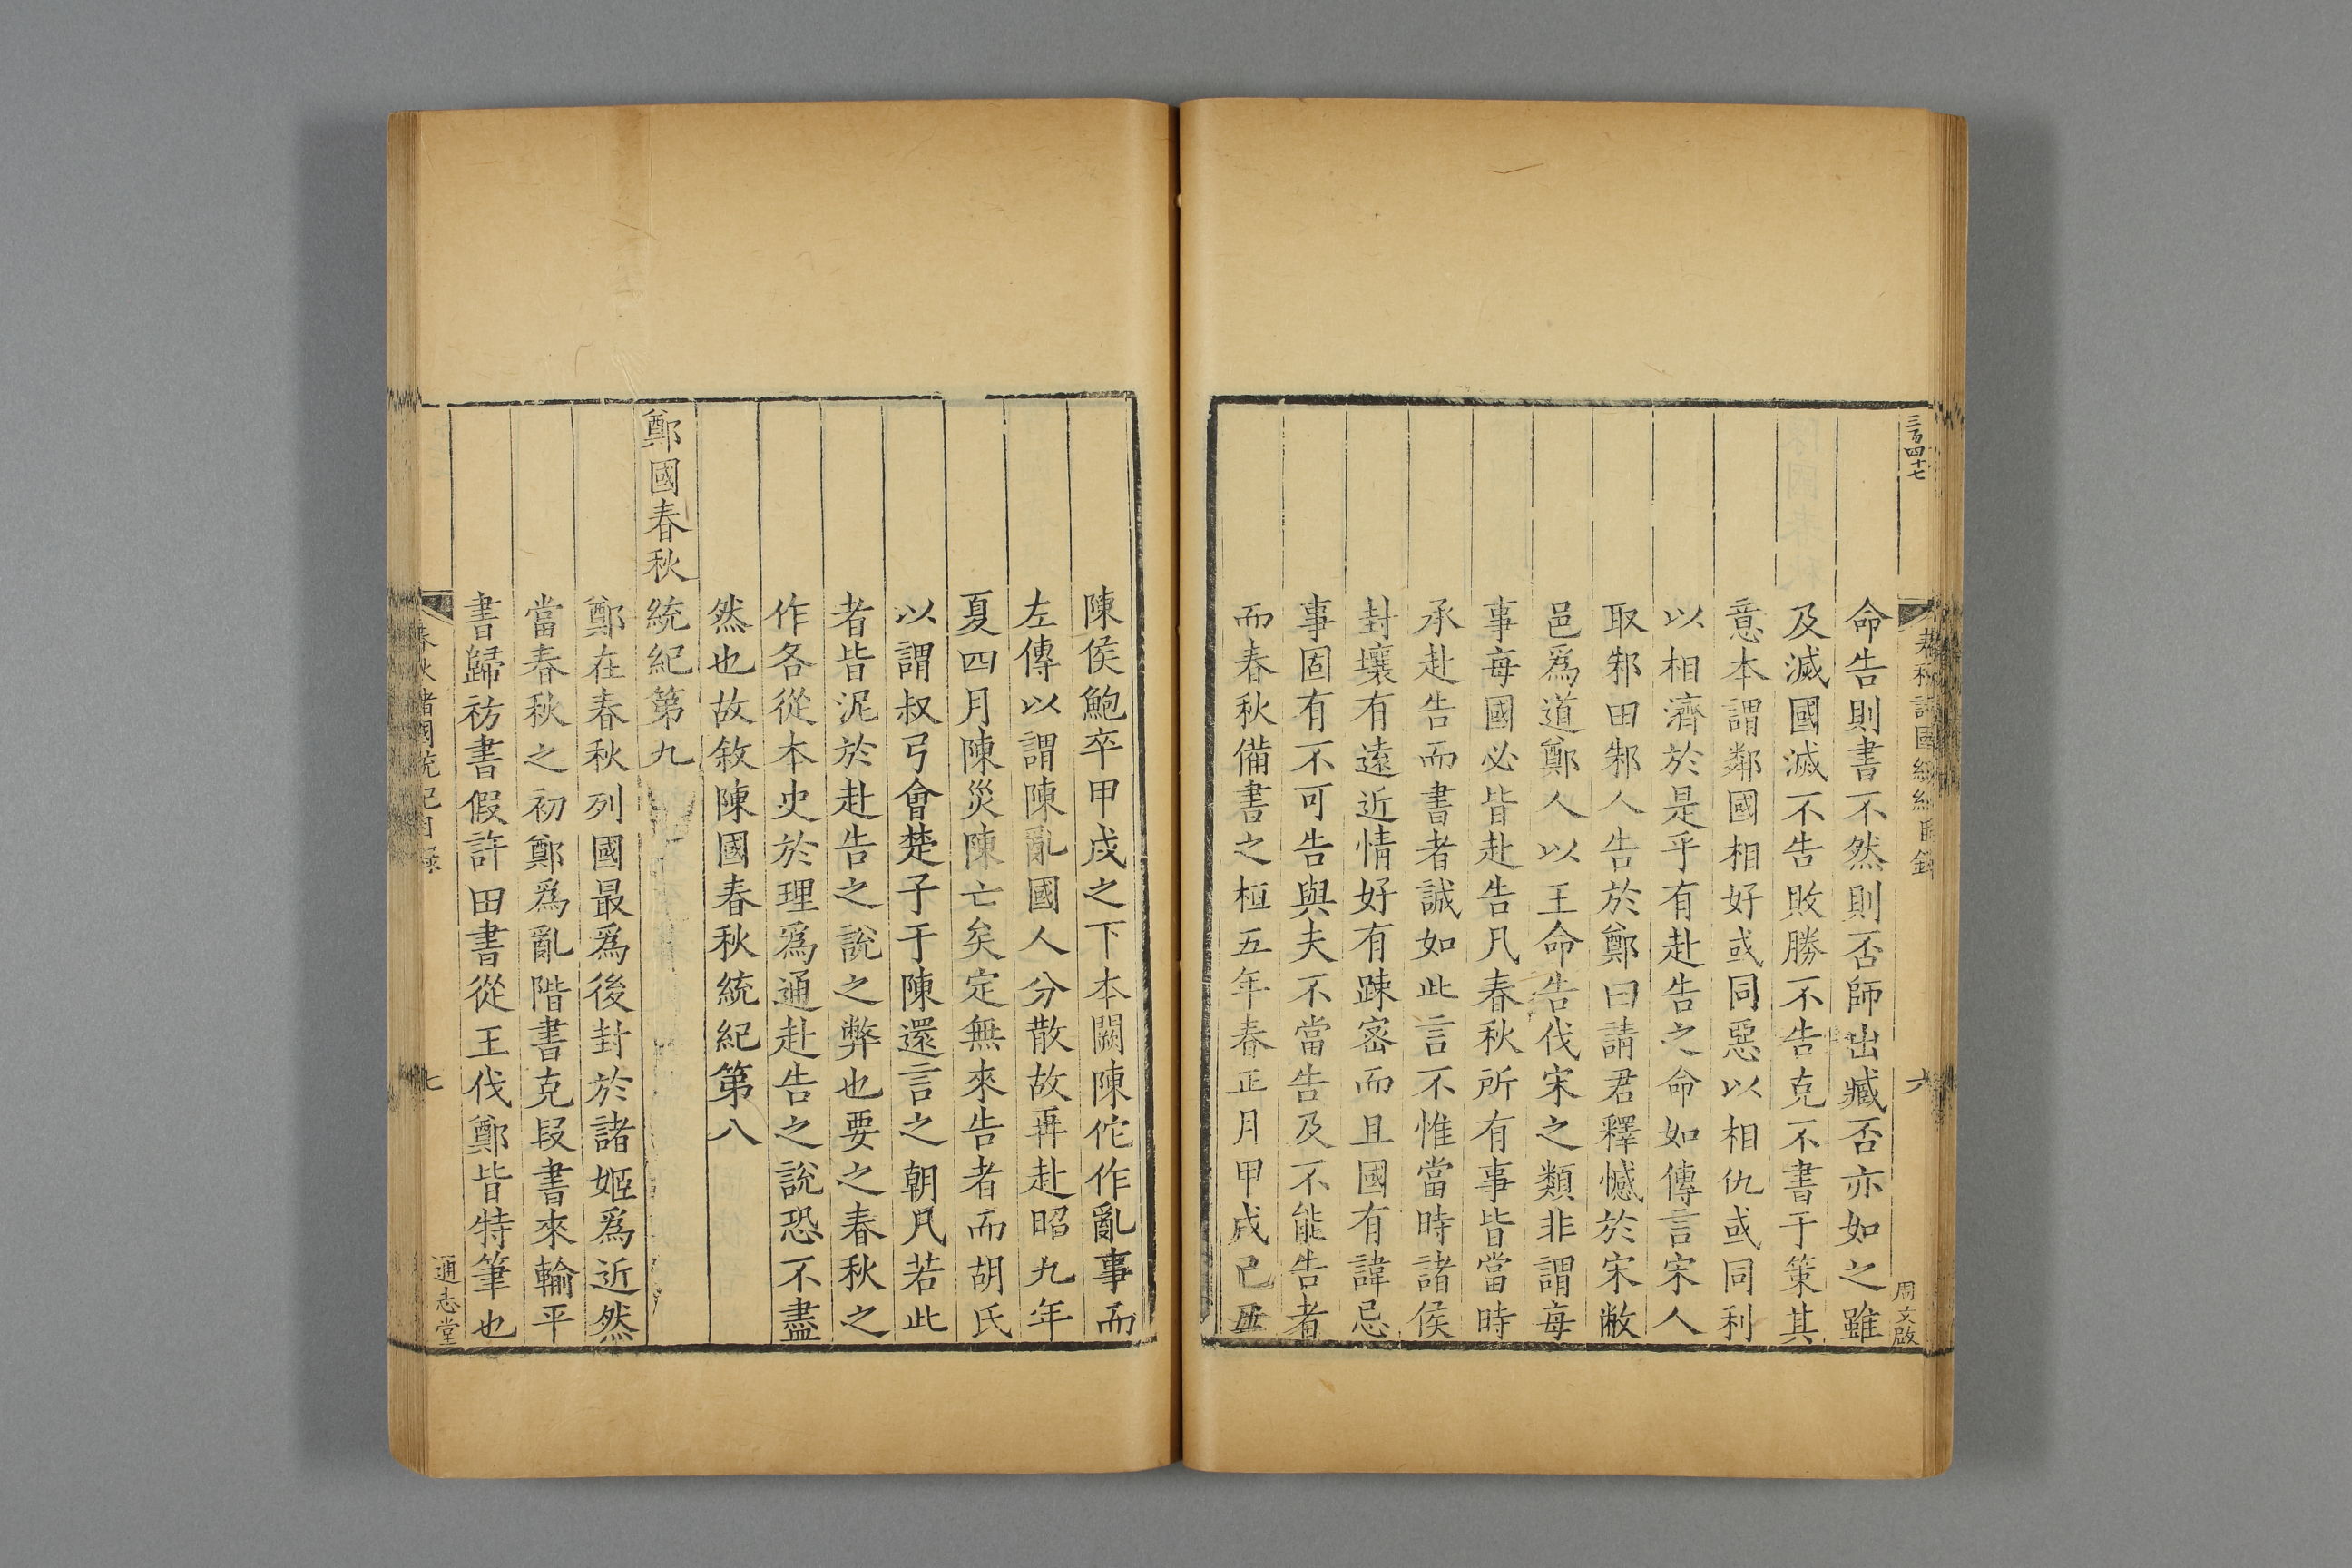 三百四十七
春秋諸國統紀目錄
六
周文啟
命告則書不然則否師出臧否亦如之雖
及滅國滅不告敗勝不告克不書于策其
意本謂鄰國相好或同惡以相仇或同利
以相濟於是乎有赴告之命如傳言宋人
取邾田邾人告於鄭曰請君釋憾於宋敝
邑爲道鄭人以王命告伐宋之類非謂每
事每國必皆赴告凡春秋所有事皆當時
承赴告而書者誠如此言不惟當時諸侯
封壤有遠近情好有踈密而且國有諱忌
事固有不可告與夫不當告及不能告者
而春秋備書之桓五年春正月甲戌己丑
陳侯鮑卒甲戌之下本闕陳佗作亂事而
左傳以謂陳亂國人分散故再赴昭九年
夏四月陳災陳亡矣定無來告者而胡氏
以謂叔弓會楚子于陳還言之朝凡若此
者皆泥於赴告之說之弊也要之春秋之
作各從本史於理爲通赴告之說恐不盡
然也故敘陳國春秋統紀第八
鄭國春秋統紀第九
鄭在春秋列國最爲後封於諸姬爲近然
當春秋之初鄭爲亂階書克段書來輸平
書歸祊書假許田書從王伐鄭皆特筆也
春秋諸國統紀目錄
七
通志堂